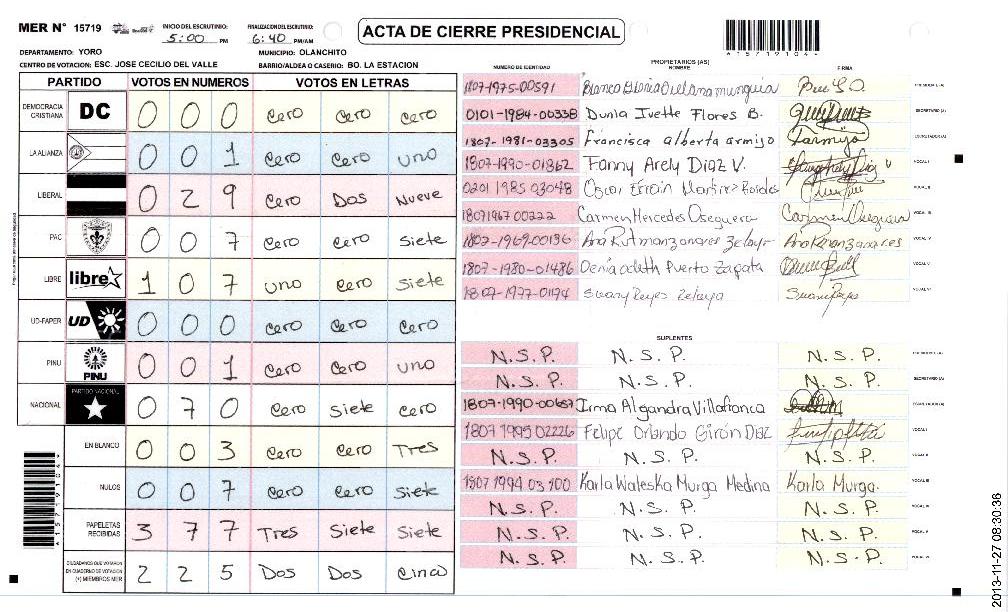 MER N° 15719
INICIO DEL ESCRUTINIO: 5:00 PM
FINALIZACION DEL ESCRUTINIO: 6:40 PM/AM
ACTA DE CIERRE PRESIDENCIAL
DEPARTAMENTO: YORO
MUNICIPIO: OLANCHITO
CENTRO DE VOTACION: ESC. JOSE CECILIO DEL VALLE
BARRIO/ALDEA O CASERIO: BO. LA ESTACION
PARTIDO VOTOS EN NUMEROS VOTOS EN LETRAS
DEMOCRACIA CRISTIANA DC 0 0 0 cero cero cero
LA ALIANZA 0 0 1 cero cero uno
LIBERAL 0 2 9 cero Dos Nueve
PAC 0 0 7 cero cero siete
LIBRE libre 1 0 7 uno cero siete
UD-FAPER UD 0 0 0 cero cero cero
PINU PINU 0 0 1 cero cero uno
NACIONAL PARTIDO NACIONAL 0 7 0 cero siete cero
EN BLANCO 0 0 3 cero cero Tres
NULOS 0 0 7 cero cero siete
PAPELETAS RECIBIDAS 3 7 7 Tres Siete Siete
CIUDADANOS QUE VOTARON EN CUADERNO DE VOTACION (+) MIEMBROS MER 2 2 5 Dos Dos cinco
PROPIETARIOS (AS)
NUMERO DE IDENTIDAD NOMBRE FIRMA
1807-1975-00591
0101-1984-00338 Dunia Ivette Flores B.
1807-1981-03305 Francisca alberta armijo Farmijo
1807-1990-01862 Fanny Arely Diaz V.
0201 1985 03048 Oscar
1807 1967 00222 Carmen Mercedes Oseguera Carmen Oseguera
1807-1969-00196
1807-1980-01486 Puerto Zapata
1807-1977-01194 Suany Reyes Zelaya
SUPLENTES
N.S.P. N.S.P. N.S.P.
N.S.P. N.S.P. N.S.P.
1807-1990-00687 Irma Alejandra Villafranca
1807 1995 02226 Felipe Orlando Girón Diaz
N.S.P. N.S.P. N.S.P.
1807 1994 03100 Karla Waleska Murga Medina Karla Murga.
N.S.P. N.S.P. N.S.P.
N.S.P. N.S.P. N.S.P.
N.S.P. N.S.P. N.S.P.
2013-11-27 08:30:36